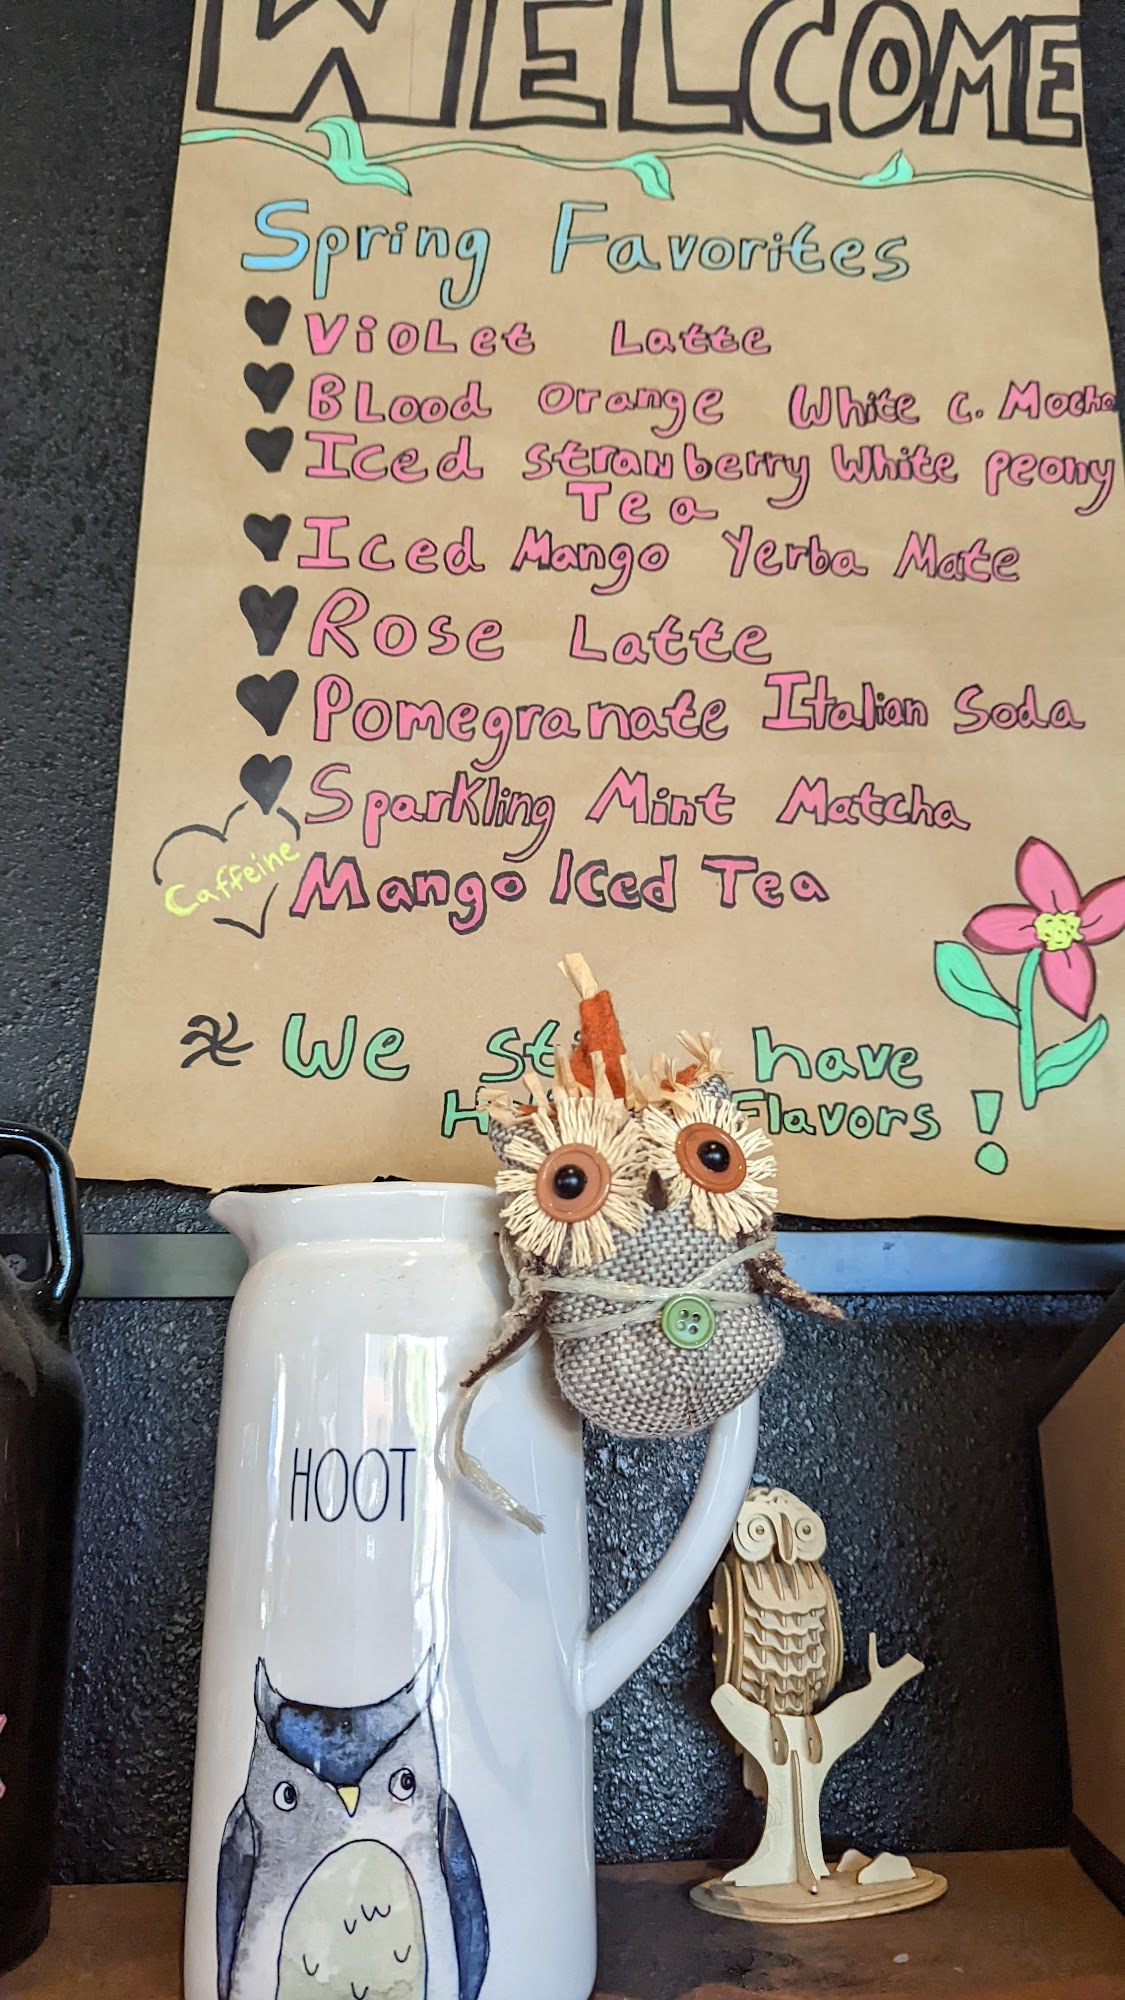 WELCOME
Spring Favorites
Violet Latte
Blood Orange White C. Mocha
Iced Strawberry White Peony
Tea
Iced Mango Yerba Mate
Rose Latte
Pomegranate Italian Soda
Sparkling Mint Matcha
Caffeine Mango Iced Tea
We have
Flavors!
HOOT